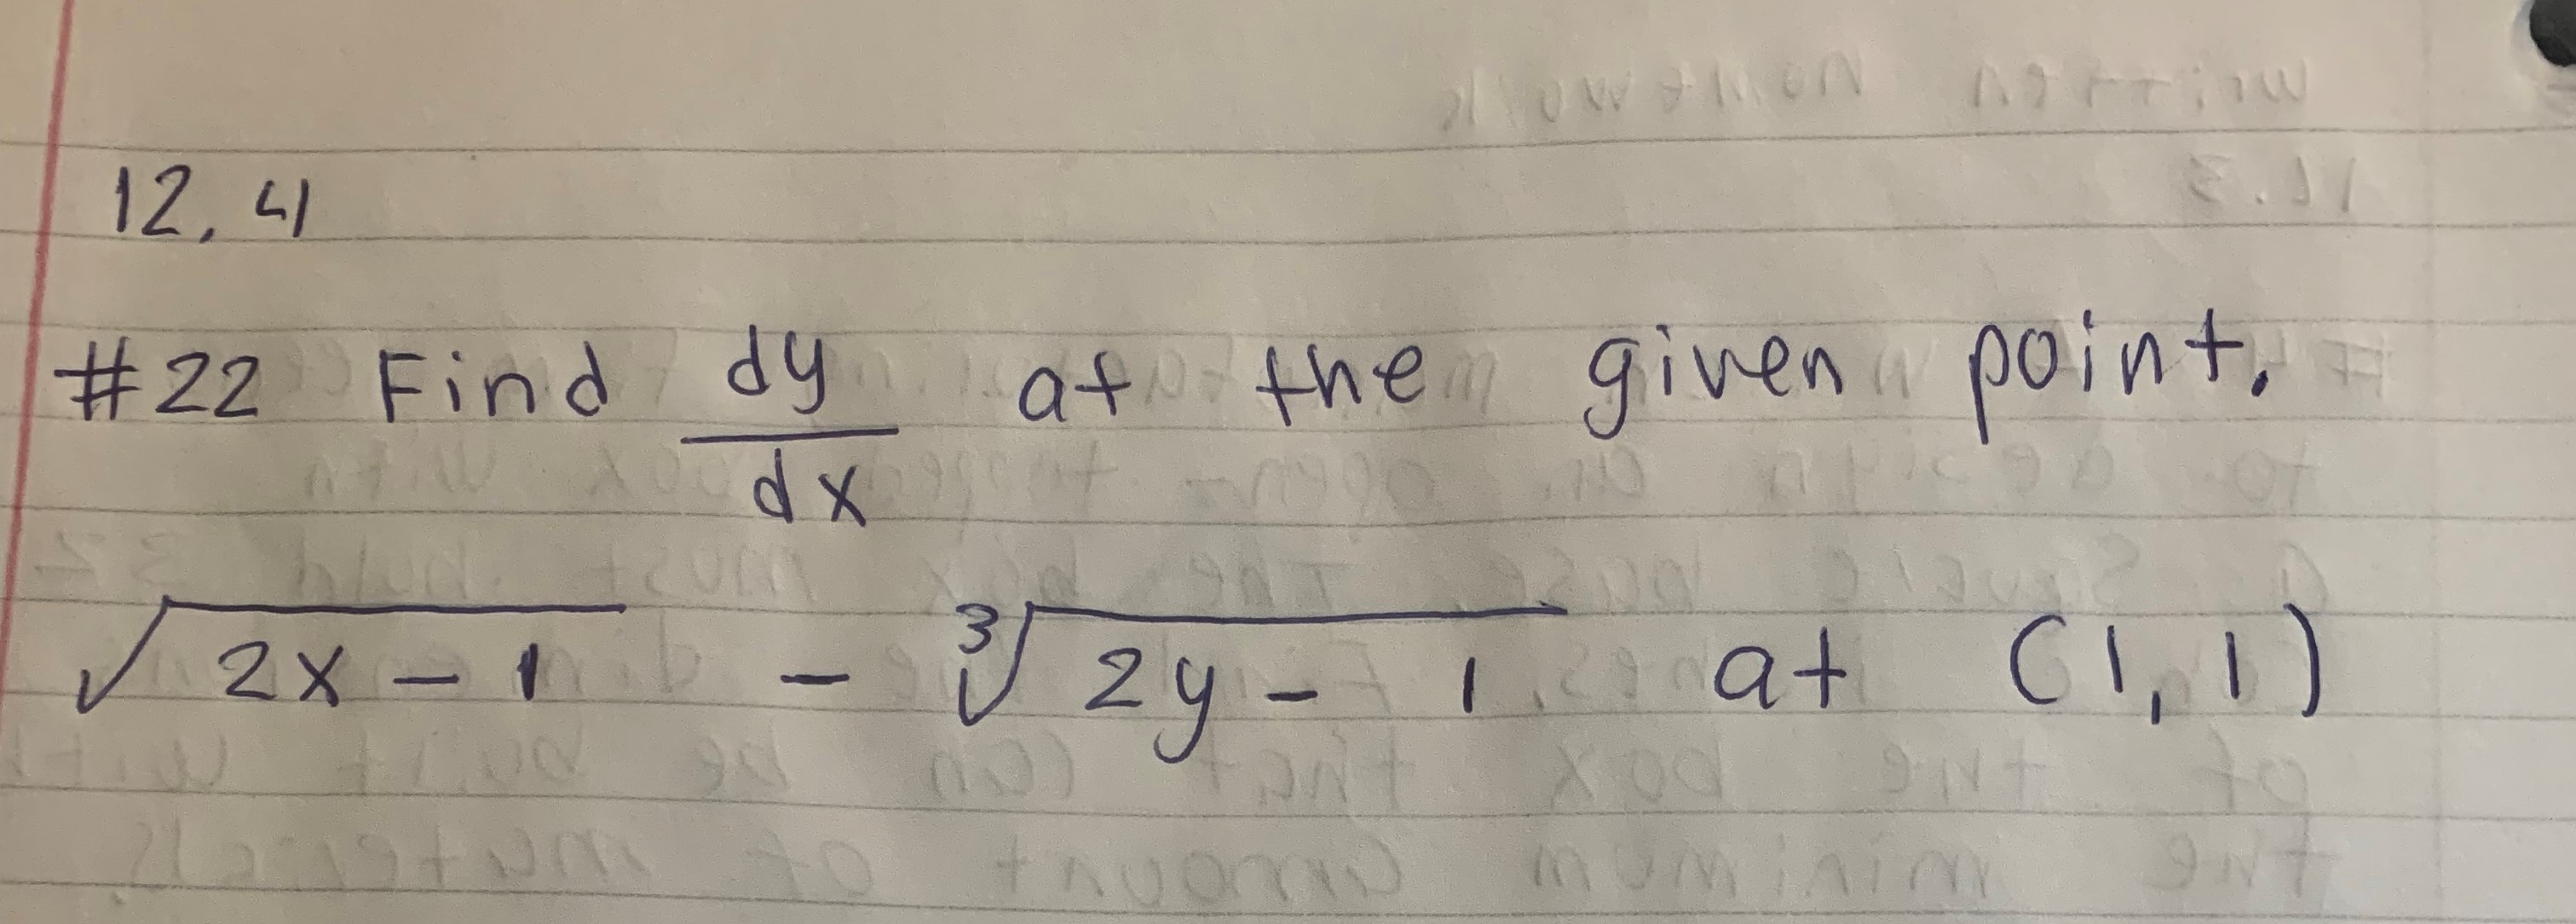 12.4
#22 Find dy/dx at the given point.
√(2x - 1) - ∛(2y - 1) at (1, 1)